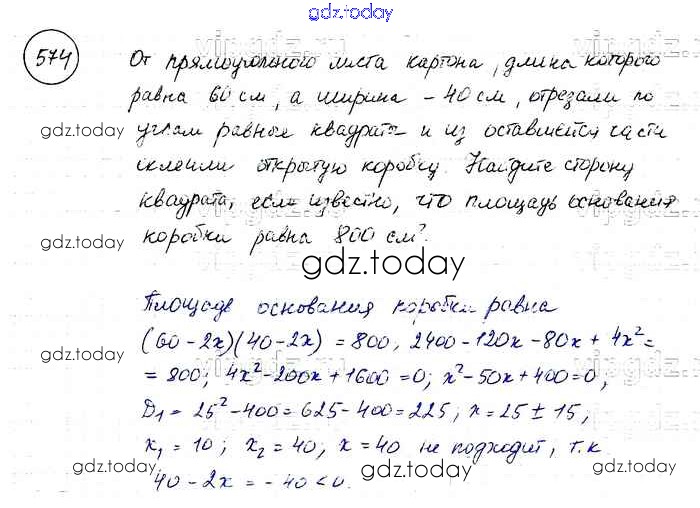 gdz.today
574
От прямоугольного листа картона, длина которого
равна 60 см, а ширина – 40 см, отрезали по
gdz.today
углам равные квадраты и из оставшейся части
склеили открытую коробку. Найдите сторону
квадрата, если известно, что площадь основания
gdz.today
коробки равна 800 см².
gdz.today
Площадь основания коробки равна
(60-2x)(40-2x) = 800, 2400-120x-80x+4x²=
gdz.today
= 800; 4x²-200x+1600=0; x²-50x+400=0,
D₁=25²-400=625-400=225; x=25±15,
x₁=10; x₂=40, x=40 не подходит, т.к
gdz.today
gdz.today
40-2x=-40<0.